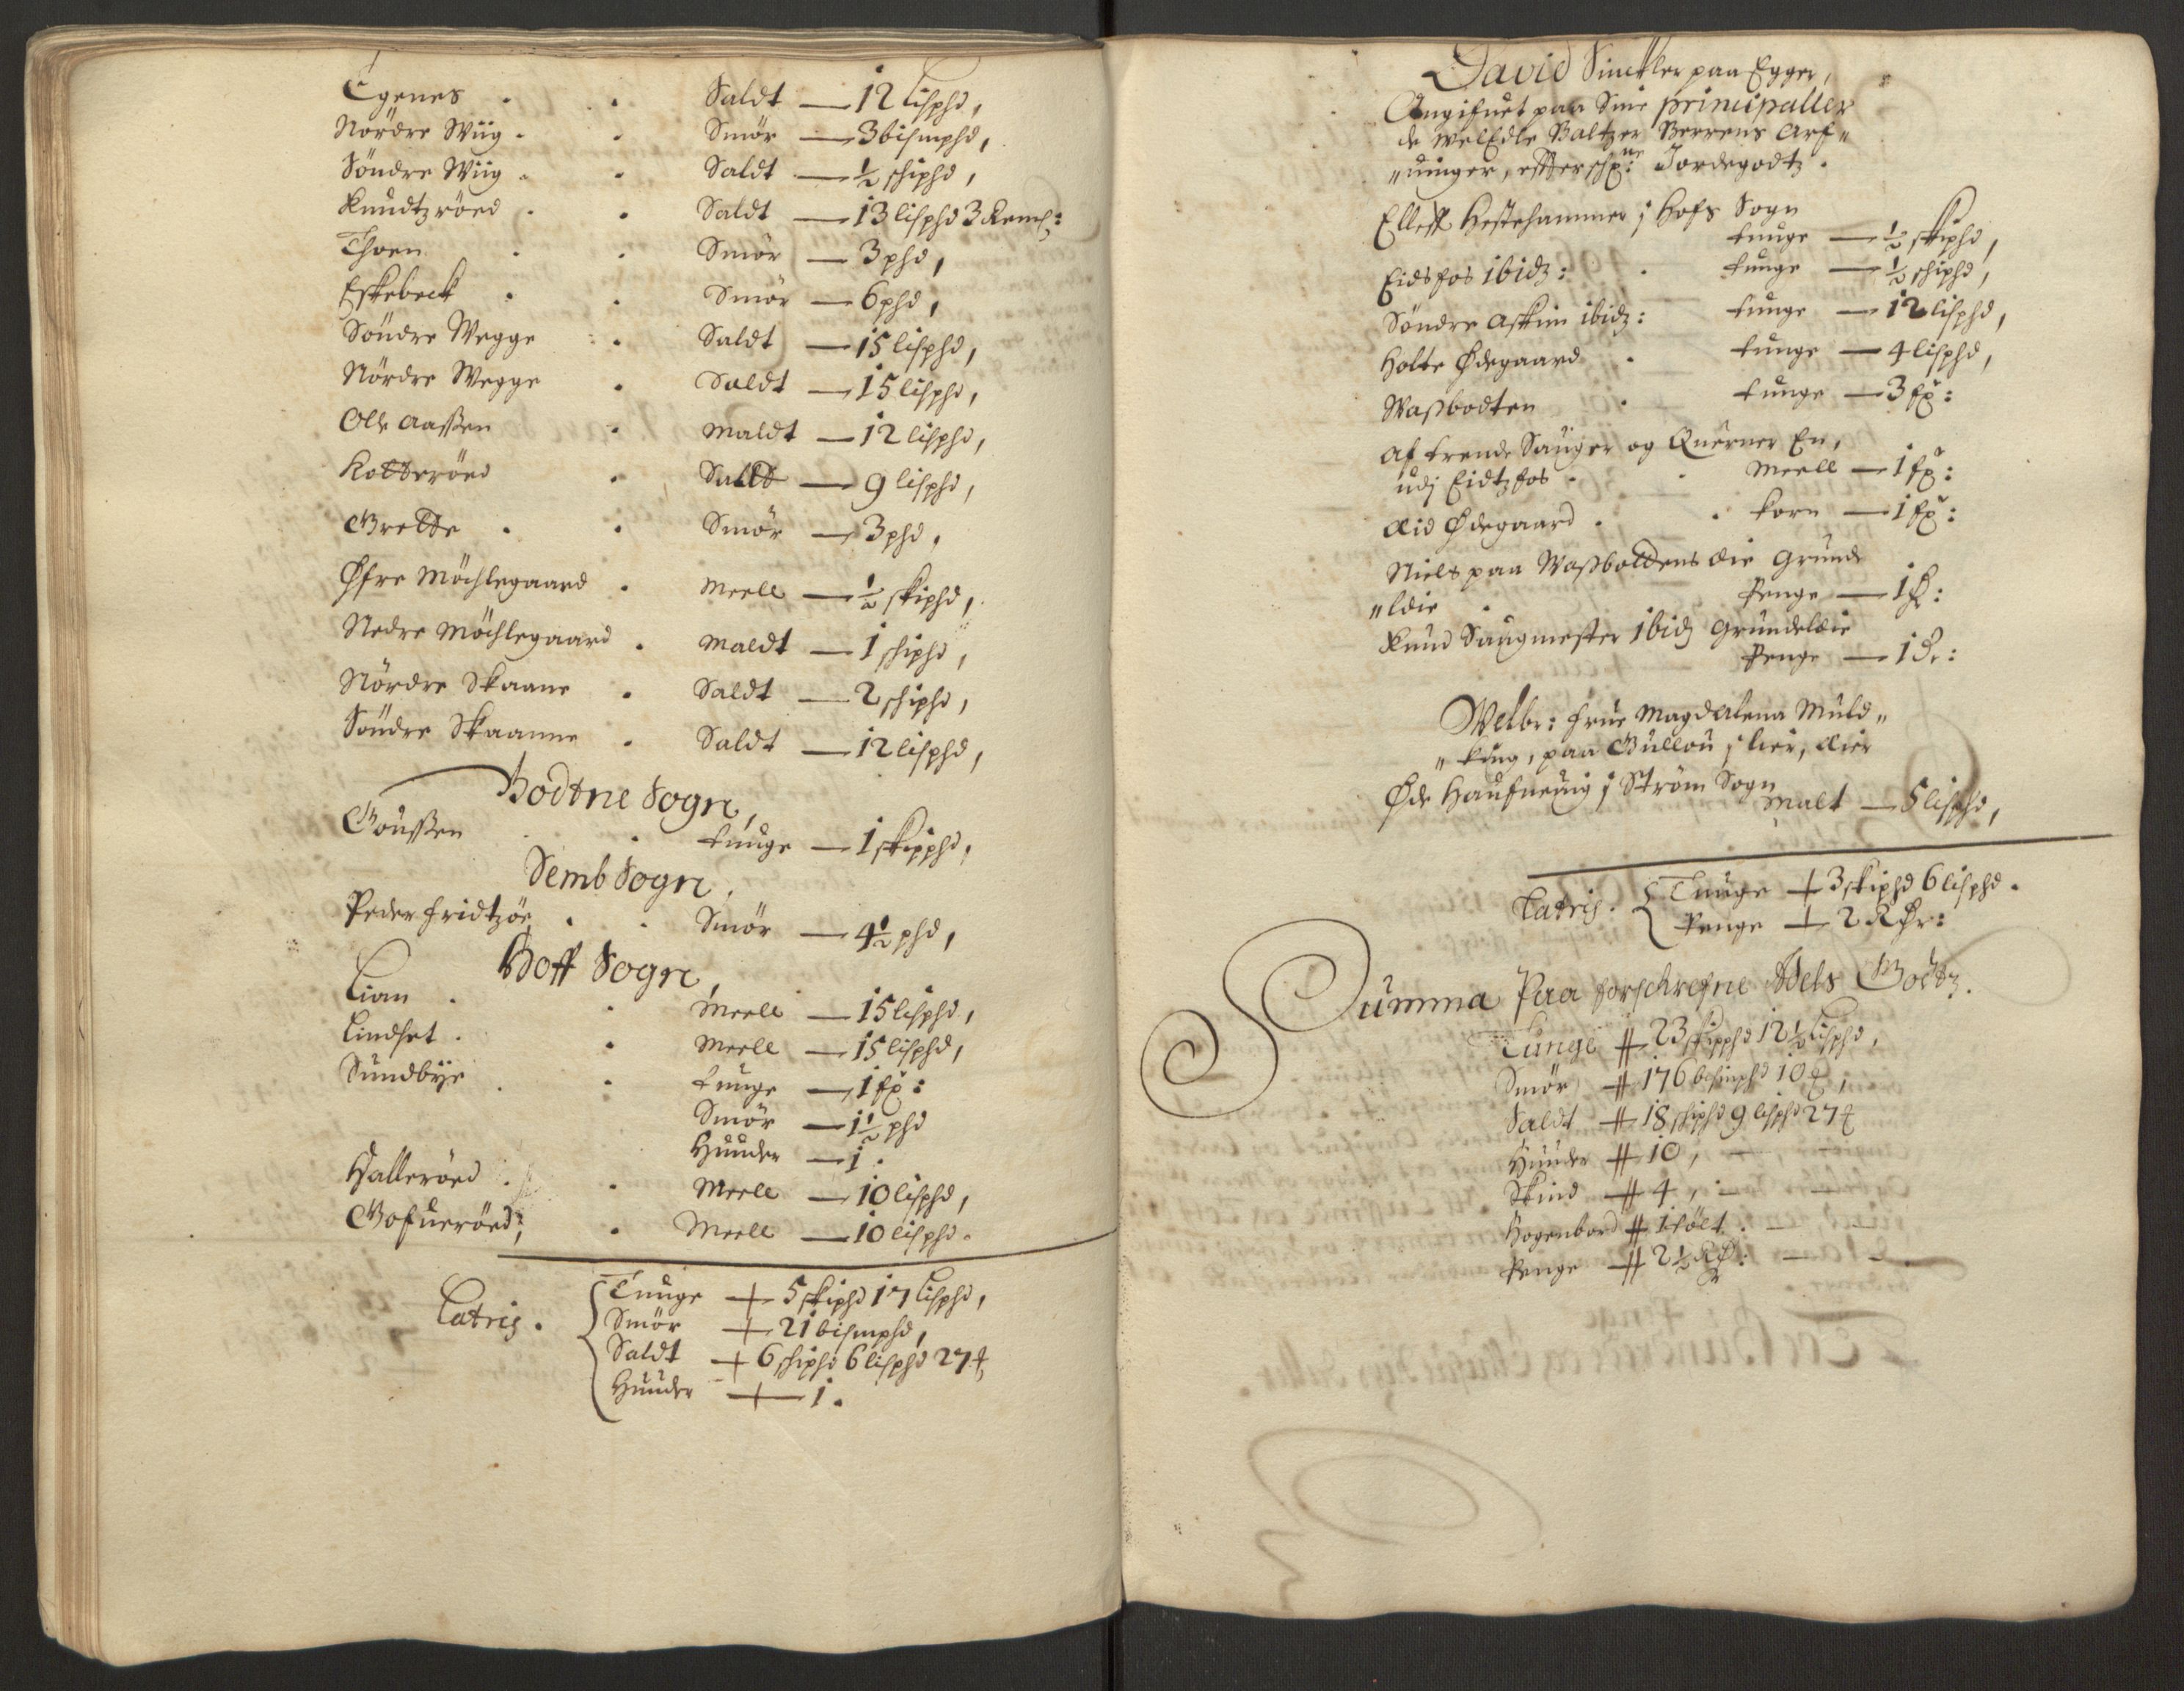 Egenes . . Saldt — 12 lispd,
Nordre Wiig . . Smör — 3 bismpd,
Söndre Wiig . . Saldt — ½ schipd,
Knudtzröed . . Saldt — 13 lispd 3 Remch:
Thoen . . Smör — 3 phd,
Eskebeck . . Smör — 6 phd,
Söndre Wegge . Saldt — 15 lisphd,
Nördre Wegge . Saldt — 15 lisphd,
Olle Aassen . Maldt — 12 lisphd,
Kotterröed . Saldt — 9 lisphd,
Grette . . Smör — 3 phd,
Øfre Möchlegaard . Meell — ½ skiphd,
Nedre Möchlegaard . Maldt — 1 schiphd,
Nördre Skaane . Saldt — 2 schiphd,
Söndre Skaanne . Saldt — 12 lisphd,
Bodtne Sogn,
Goussen . tunge — 1 skipphd,
Semb Sogn,
Peder fridtzöe . . Smör — 4½ phd,
Hoff Sogn,
Lian . . Meell — 15 lisphd,
Lindset . . Meell — 15 lisphd,
Sundbÿe . . tunge — 1 fx:
Smör — 1½ phd
Huuder — 1.
Halleröed . . Meell — 10 lisphd,
Gofueröed; . Meell — 10 lisphd.
Latris. Tunge + 5 skiphd 17 lisphd,
Smör + 21 bismphd,
Saldt + 6 schiphd 6 lisphd 27 ℔
Huuder + 1.
David Sinckler paa Egger,
Angifuet paa Sine principaller
de WelEdle Baltzer Berrens Arf„
„uinger, effterschr:ne Jordegodtz.
Elleff Hestehammer j Hofs Sogn
tunge — ½ skiphd,
Eidsfos ibidz: . tunge — ½ schiphd,
Söndre Askim ibidz: tunge — 12 lisphd,
Holte Ødegaard . tunge — 4 lisphd,
Wassbodten . tunge — 3 fx:
Af trende Sauger og Querner En,
udj Eidtzfos . . Meell — 1 fx:
Eid Ødegaard . . korn — 1 fx:
Niels paa Wassbottens Eie Grunde
„leie . Penge — 1 ℞:
Knud Saugmester ibidz Grundeleie
Penge — 1 Or:
Welbr: frue Magdalena Muld„
„king, paa Gullou j lier, Eier
Øde Haufneuig j Ström Sogn
Malt — 5 lisphd,
Latris. Tunge + 3 skiphd 6 lisphd.
Penge + 2 R Or:
Summa Paa forschrefne Adels Godtz.
Tunge # 23 skipphd 12½ lisphd,
Smör # 176 bismphd 10 ℔,
Saldt # 18 schiphd 9 lisphd 27 ℔
Huuder # 10, — —
Skind # 4, — —
Hogenbord # 1 sölt. — —
Penge # 2½ R: — —